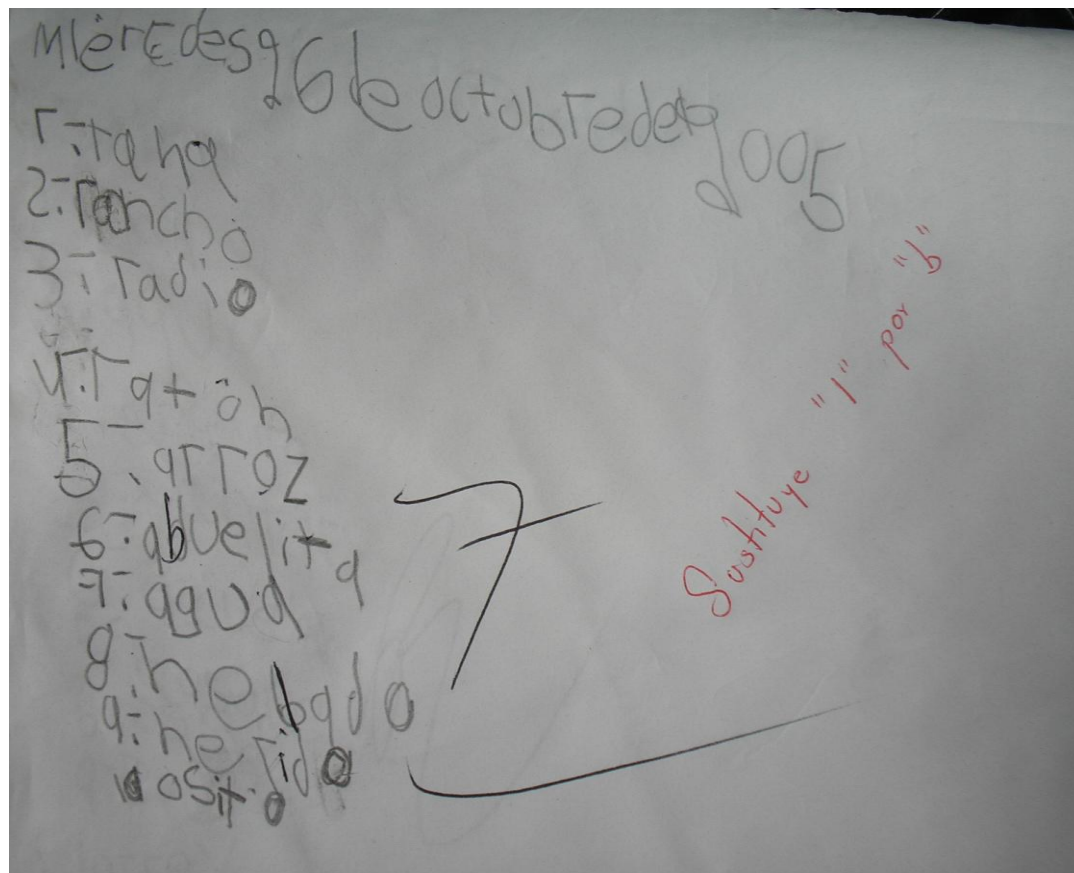 miércoles 26 de octubre de 2005
1.-rana
2.-rancho
3.-radio
4.-ratón
5.-arroz
6.-abuelita
7.-agua
8.-hebado
9.-herido
10 osito
7
Sustituye "l" por "b"